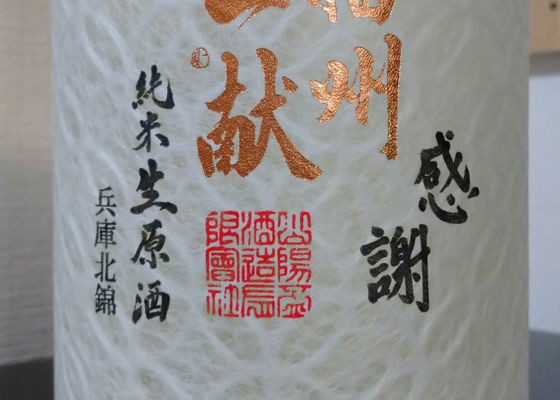 感謝
州
献
山陽盃
酒造有
限會社
純米生原酒
兵庫北錦